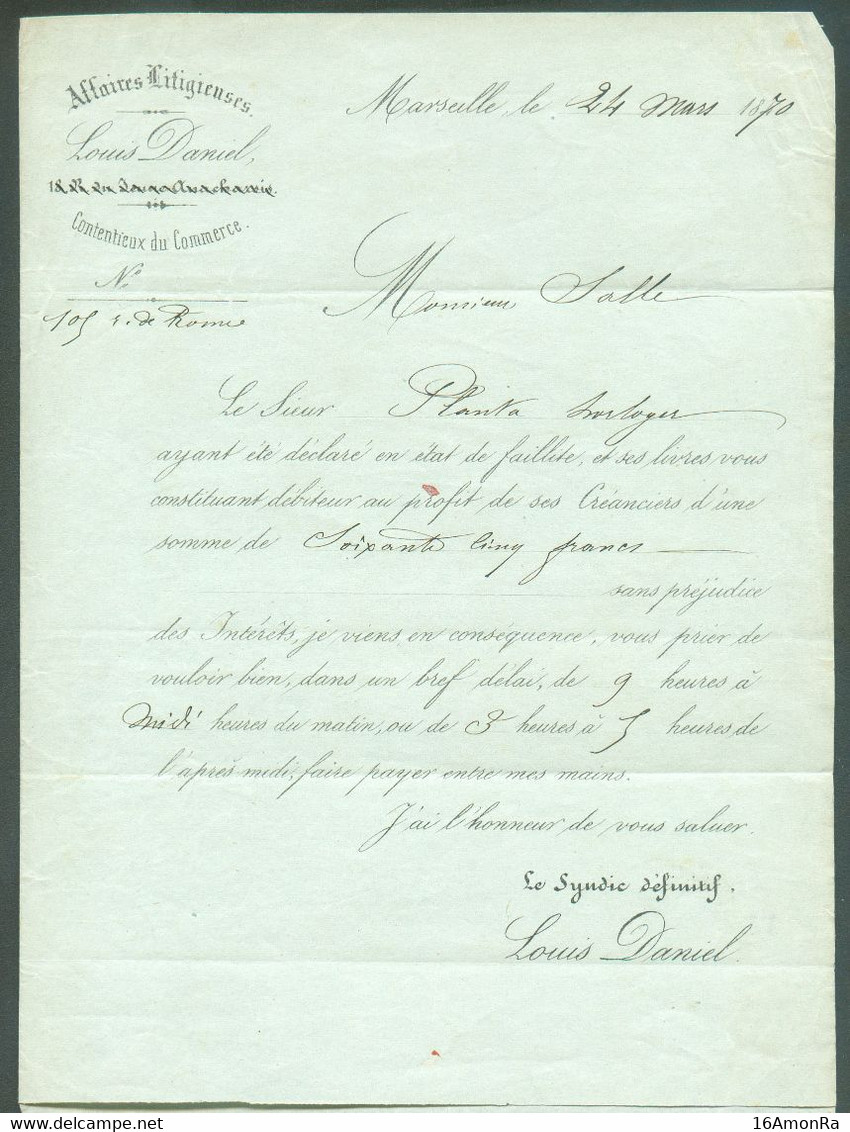 Affaires Litigieuses.
Louis Daniel,
Contentieux du Commerce.
N°
105 r. de Rome
Marseille, le 24 Mars 1870
Monsieur Salle
Le Sieur Planka horloger
ayant été déclaré en état de faillite, et ses livres vous
constituant débiteur au profit de ses Créanciers d'une
somme de Soixante cinq francs
sans préjudice
des Intérêts, je viens en conséquence, vous prier de
vouloir bien, dans un bref délai, de 9 heures à
midi heures du matin, ou de 3 heures à 5 heures de
l'après midi, faire payer entre mes mains.
J'ai l'honneur de vous saluer.
Le Syndic définitif.
Louis Daniel.
16AmonRa